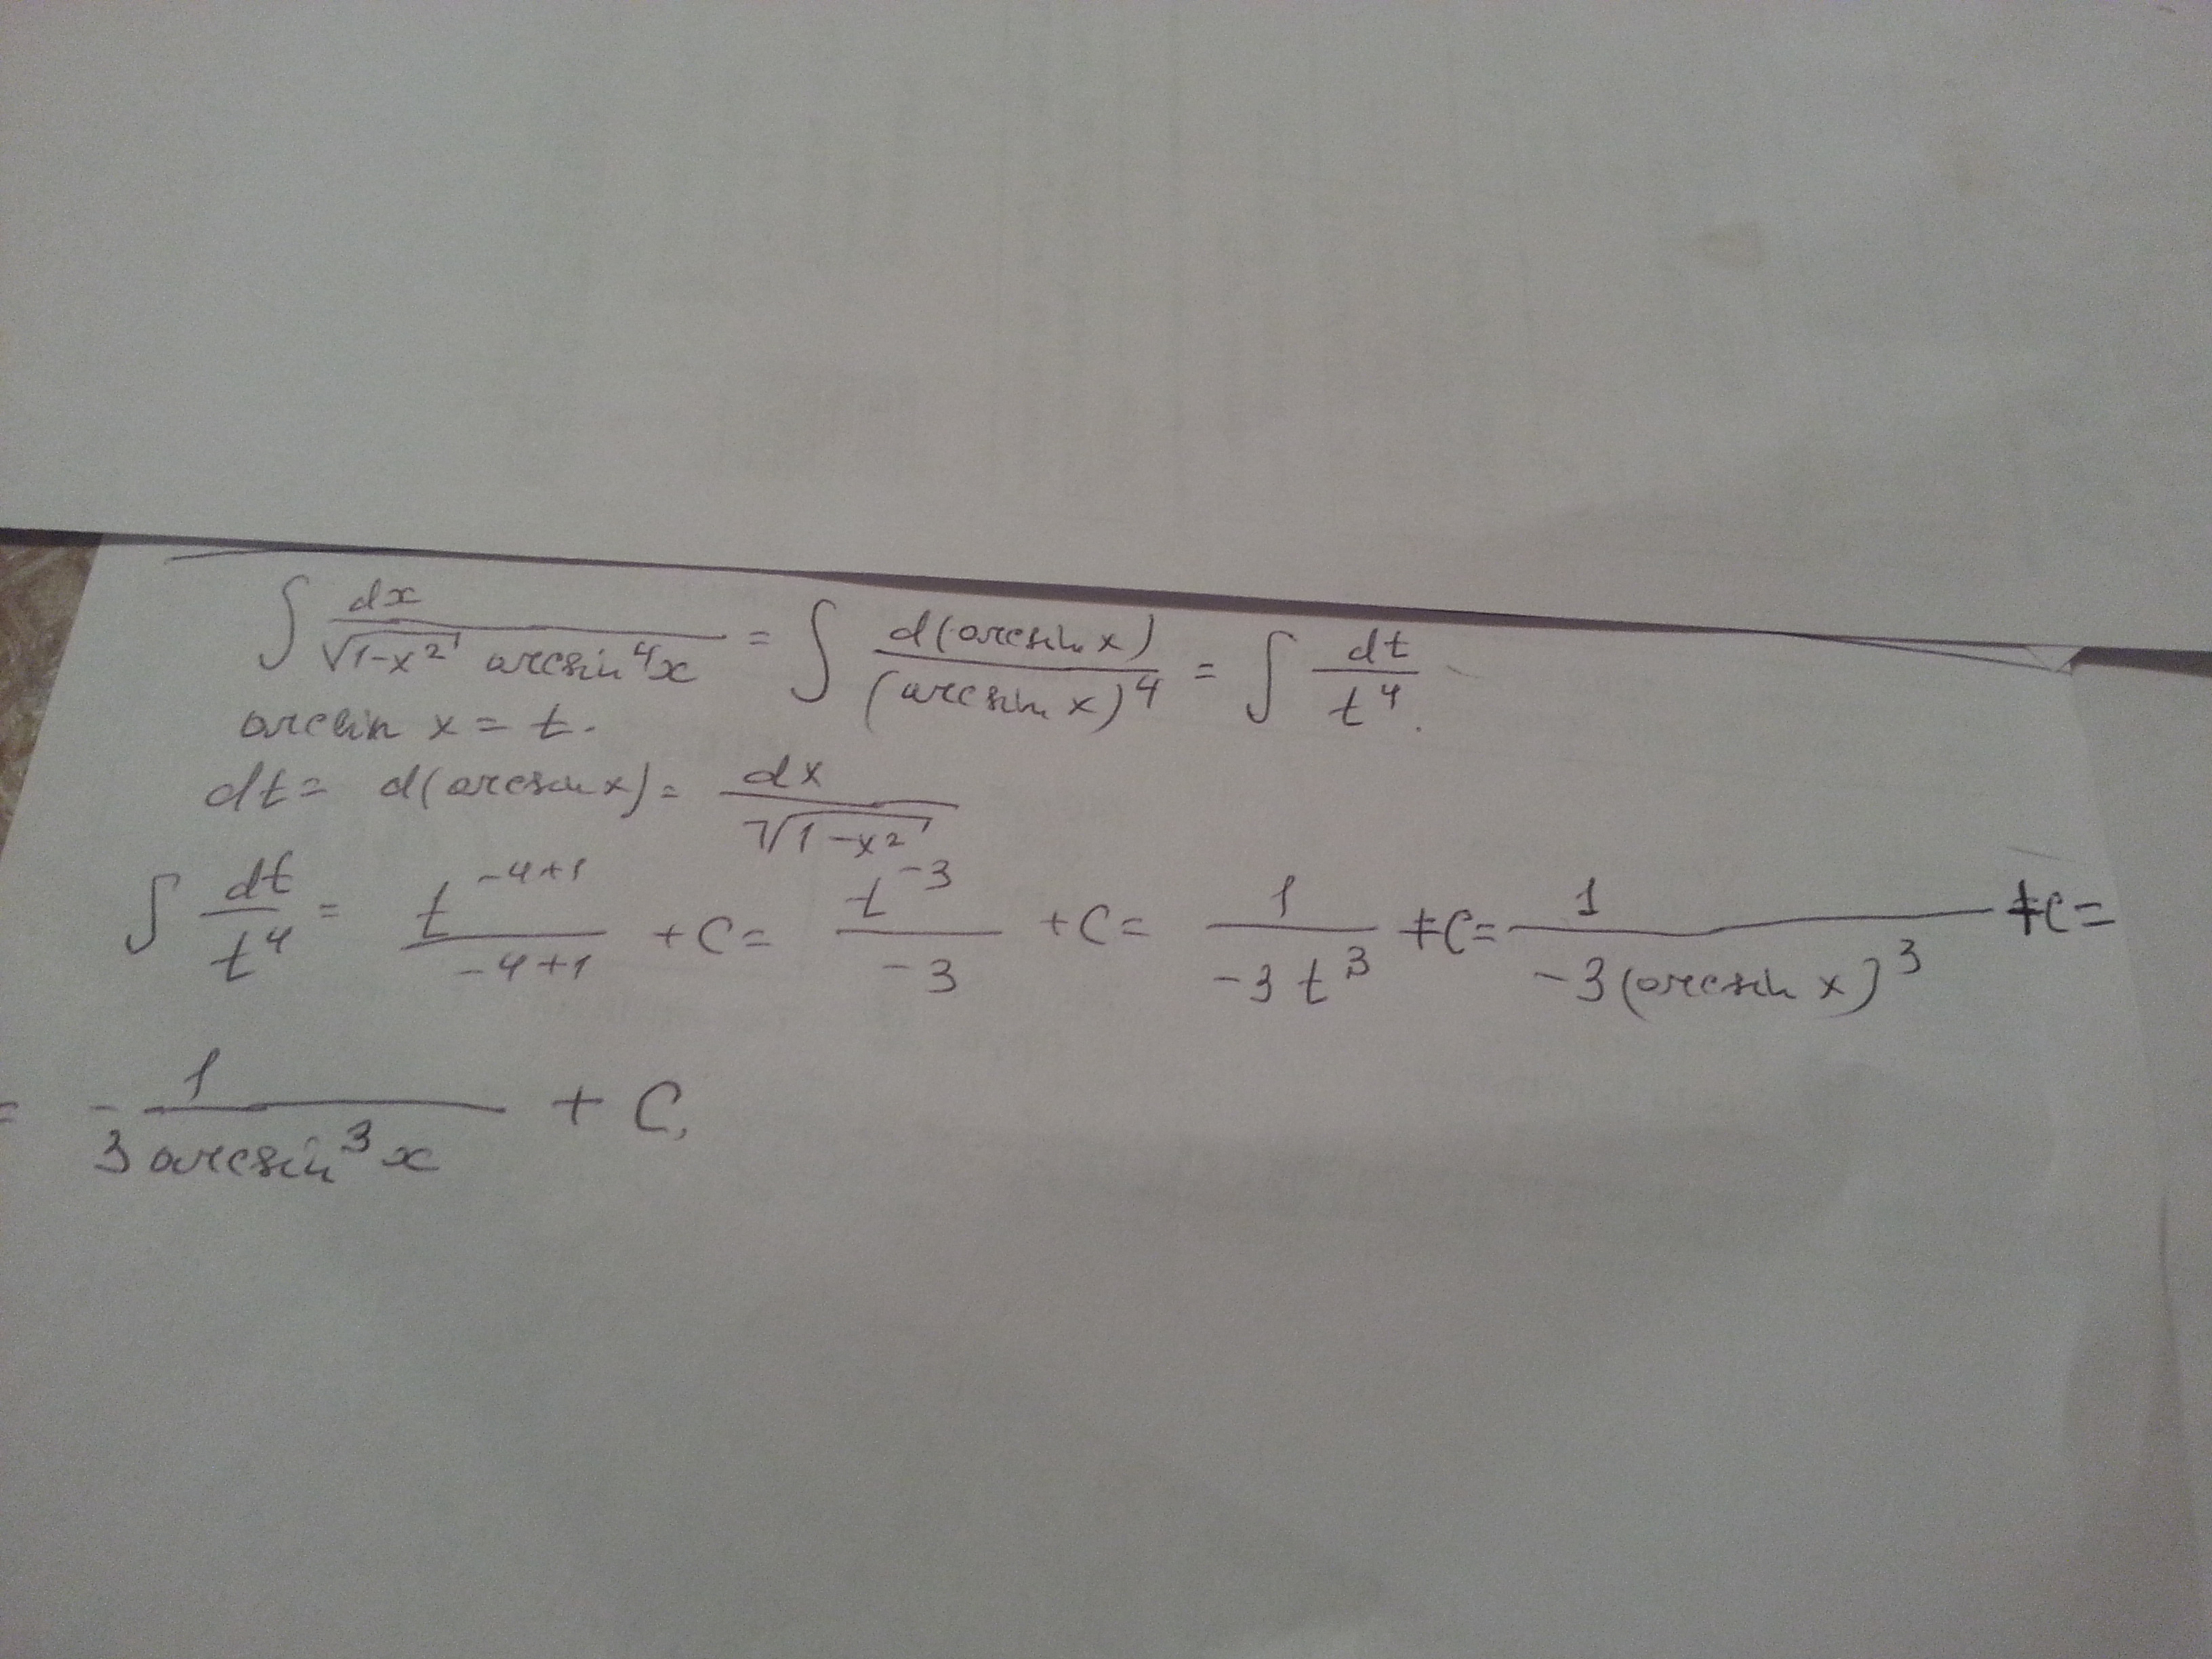 ∫ dx / (√(1-x²) arcsin⁴x) = ∫ d(arcsin x) / (arcsin x)⁴ = ∫ dt / t⁴.
arcsin x = t.
dt = d(arcsin x) = dx / √(1-x²)
∫ dt / t⁴ = t^(-4+1) / (-4+1) + C = t^(-3) / (-3) + C = 1 / (-3t³) + C = 1 / (-3(arcsin x)³) + C =
= - 1 / (3 arcsin³x) + C,